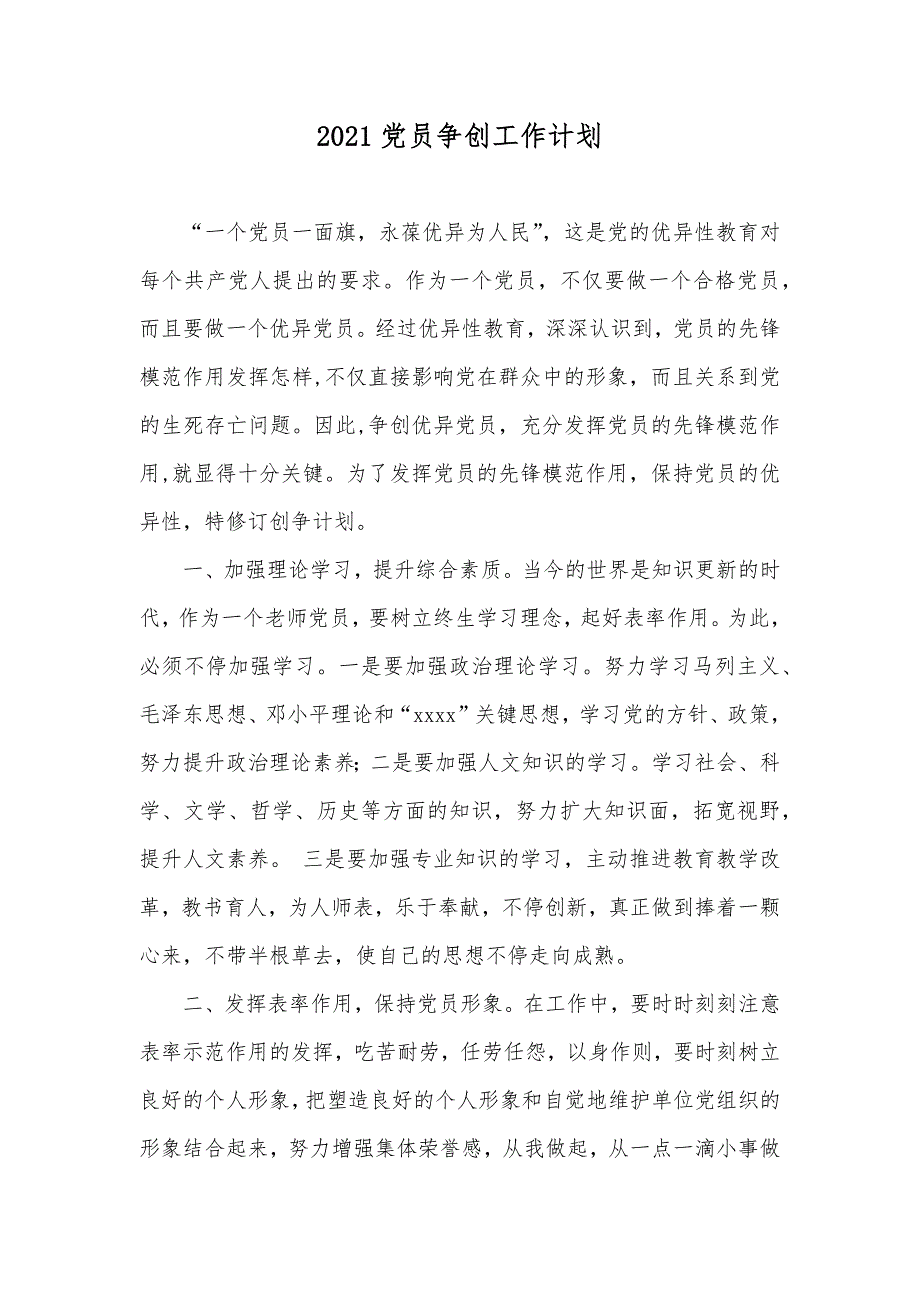 2021党员争创工作计划
“一个党员一面旗，永葆优异为人民”，这是党的优异性教育对
每个共产党人提出的要求。作为一个党员，不仅要做一个合格党员，
而且要做一个优异党员。经过优异性教育，深深认识到，党员的先锋
模范作用发挥怎样,不仅直接影响党在群众中的形象，而且关系到党
的生死存亡问题。因此,争创优异党员，充分发挥党员的先锋模范作
用,就显得十分关键。为了发挥党员的先锋模范作用，保持党员的优
异性，特修订创争计划。
一、加强理论学习，提升综合素质。当今的世界是知识更新的时
代，作为一个老师党员，要树立终生学习理念，起好表率作用。为此，
必须不停加强学习。一是要加强政治理论学习。努力学习马列主义、
毛泽东思想、邓小平理论和“xxxx”关键思想，学习党的方针、政策，
努力提升政治理论素养；二是要加强人文知识的学习。学习社会、科
学、文学、哲学、历史等方面的知识，努力扩大知识面，拓宽视野，
提升人文素养。 三是要加强专业知识的学习，主动推进教育教学改
革，教书育人，为人师表，乐于奉献，不停创新，真正做到捧着一颗
心来，不带半根草去，使自己的思想不停走向成熟。
二、发挥表率作用，保持党员形象。在工作中，要时时刻刻注意
表率示范作用的发挥，吃苦耐劳，任劳任怨，以身作则，要时刻树立
良好的个人形象，把塑造良好的个人形象和自觉地维护单位党组织的
形象结合起来，努力增强集体荣誉感，从我做起，从一点一滴小事做